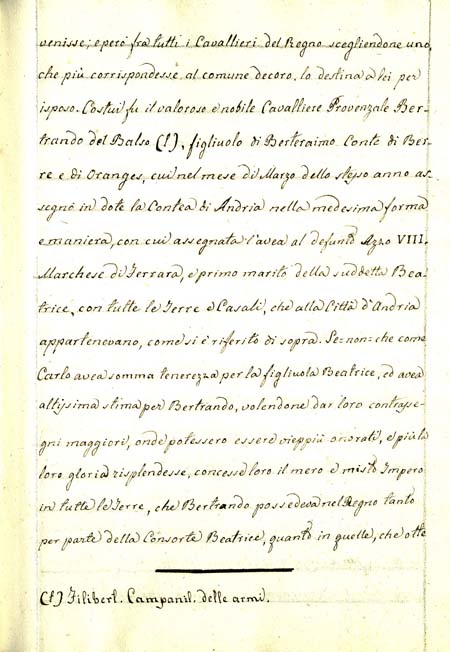 venisse; e però fra tutti i Cavallieri del Regno scegliendone uno,
che più corrispondesse al comune decoro, lo destina a lei per
isposo. Costui fu il valoroso e nobile Cavalliere Provenzale Ber-
trando del Balso (1), figliuolo di Berteraimo Conte di Ber-
re e di Oranges, cui nel mese di Marzo dello stesso anno as
segnò in dote la Contea di Andria nella medesima forma
e maniera, con cui assegnata l'avea al defunto Azzo VIII.
Marchese di Ferrara, e primo marito della suddetta Bea-
trice, con tutte le Terre e Casali, che alla Città d'Andria
appartenevano, come si è riferito di sopra. Se=non=che come
Carlo avea somma tenerezza per la figliuola Beatrice, ed avea
altissima stima per Bertrando, volendone dar loro contrasse-
gni maggiori, onde potessero essere vieppiù onorati, e più la
loro gloria risplendesse, concesse loro il mero e misto Impero
in tutte le Terre, che Bertrando possedeva nel Regno tanto
per parte della Consorte Beatrice, quanto in quelle, che otte
(1) Filibert. Campanil. delle armi.